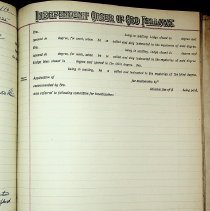 INDEPENDENT ORDER OF ODD FELLOWS
Bro.
being in waiting, Lodge closed in degree and
opened in degree, for same, when he was called and duly instructed in the mysteries of said degree.
Bro.
being in waiting, Lodge closed in degree and
opened in degree, for same, when he was called and duly instructed in the mysteries of said degree.
Lodge then closed in degree and opened in the third degree. Bro.
being in waiting, he was called and duly instructed in the mysteries of the third degree.
Application of for membership by
recommended by Bro. initiation fee of $ being paid,
was referred to following committee for investigation: